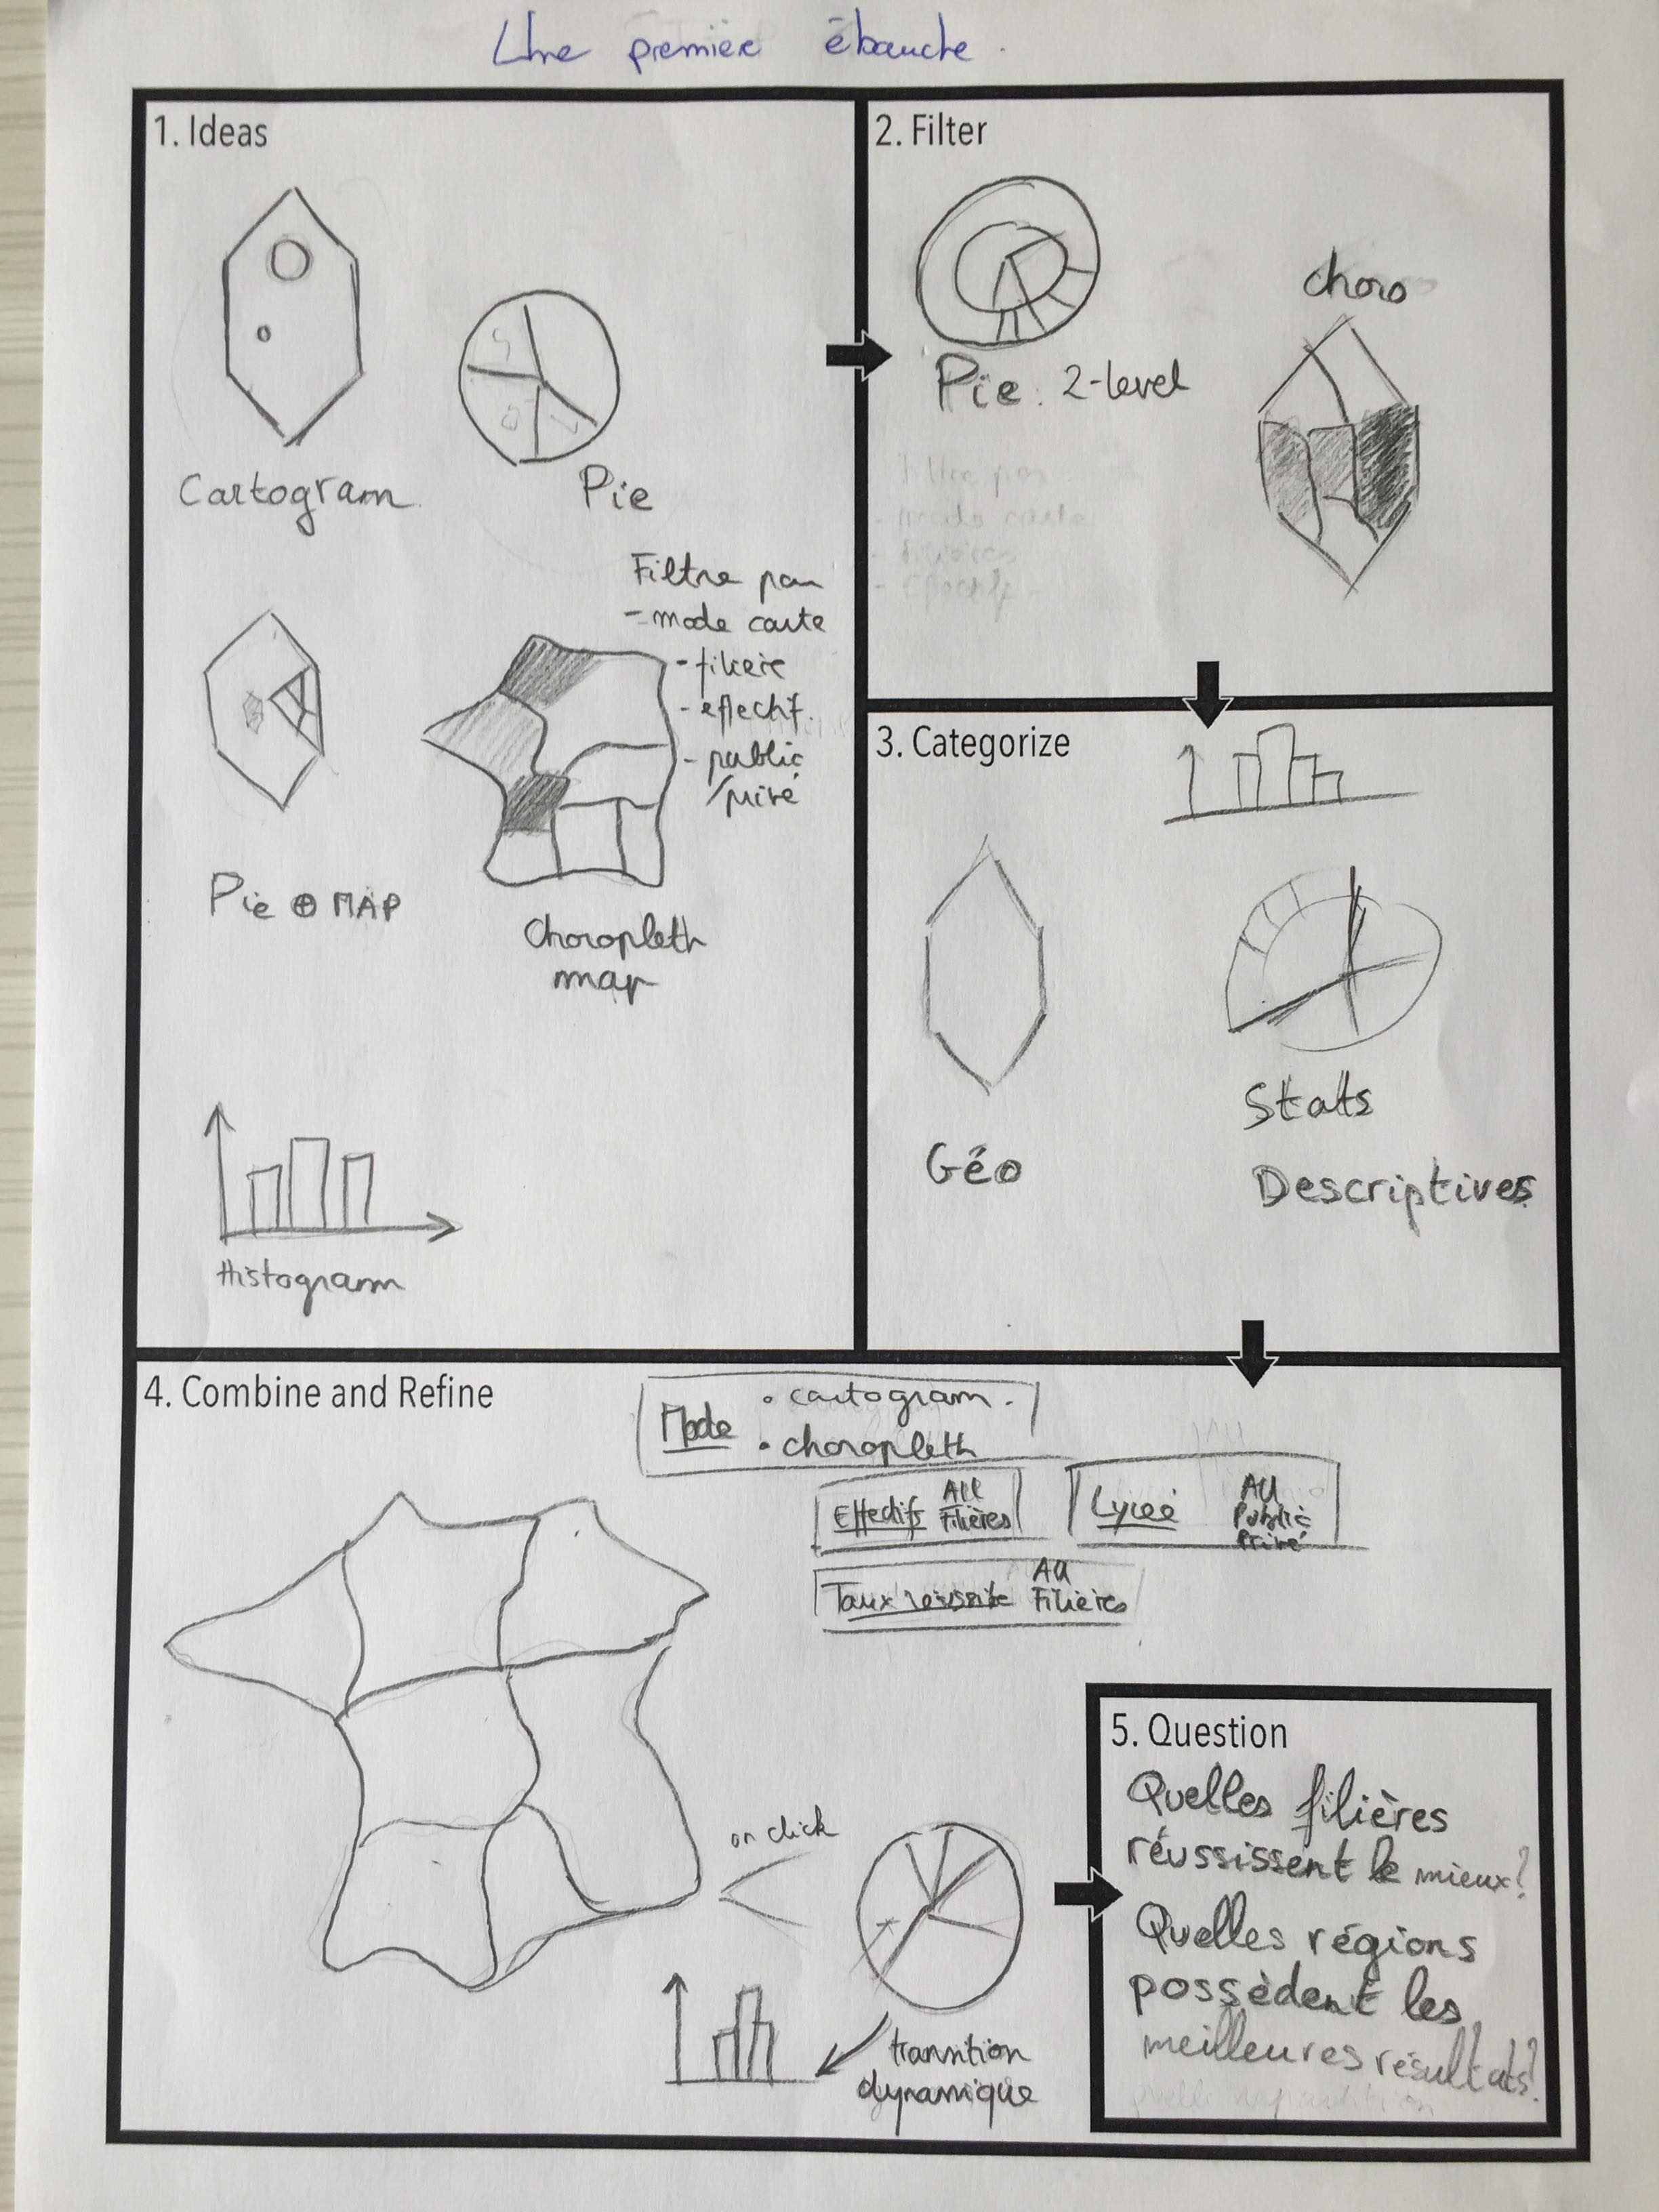 Une première ébauche.
1. Ideas
Cartogram
Pie
Filtre par
- mode carte
- filière
- effectif
- public
/privé
Pie ⊕ MAP
Choropleth
map
Histogram
2. Filter
Pie : 2-level
choro
Filtre par
- mode carte
- filières
- effectifs
3. Categorize
Géo
Stats
Descriptives
4. Combine and Refine
Mode • cartogram.
• choropleth
Effectifs All
Filières
Lycée All
Public
Privé
Taux réussite All
Filières
on click
transition
dynamique
5. Question
Quelles filières
réussissent le mieux?
Quelles régions
possèdent les
meilleures résultats?